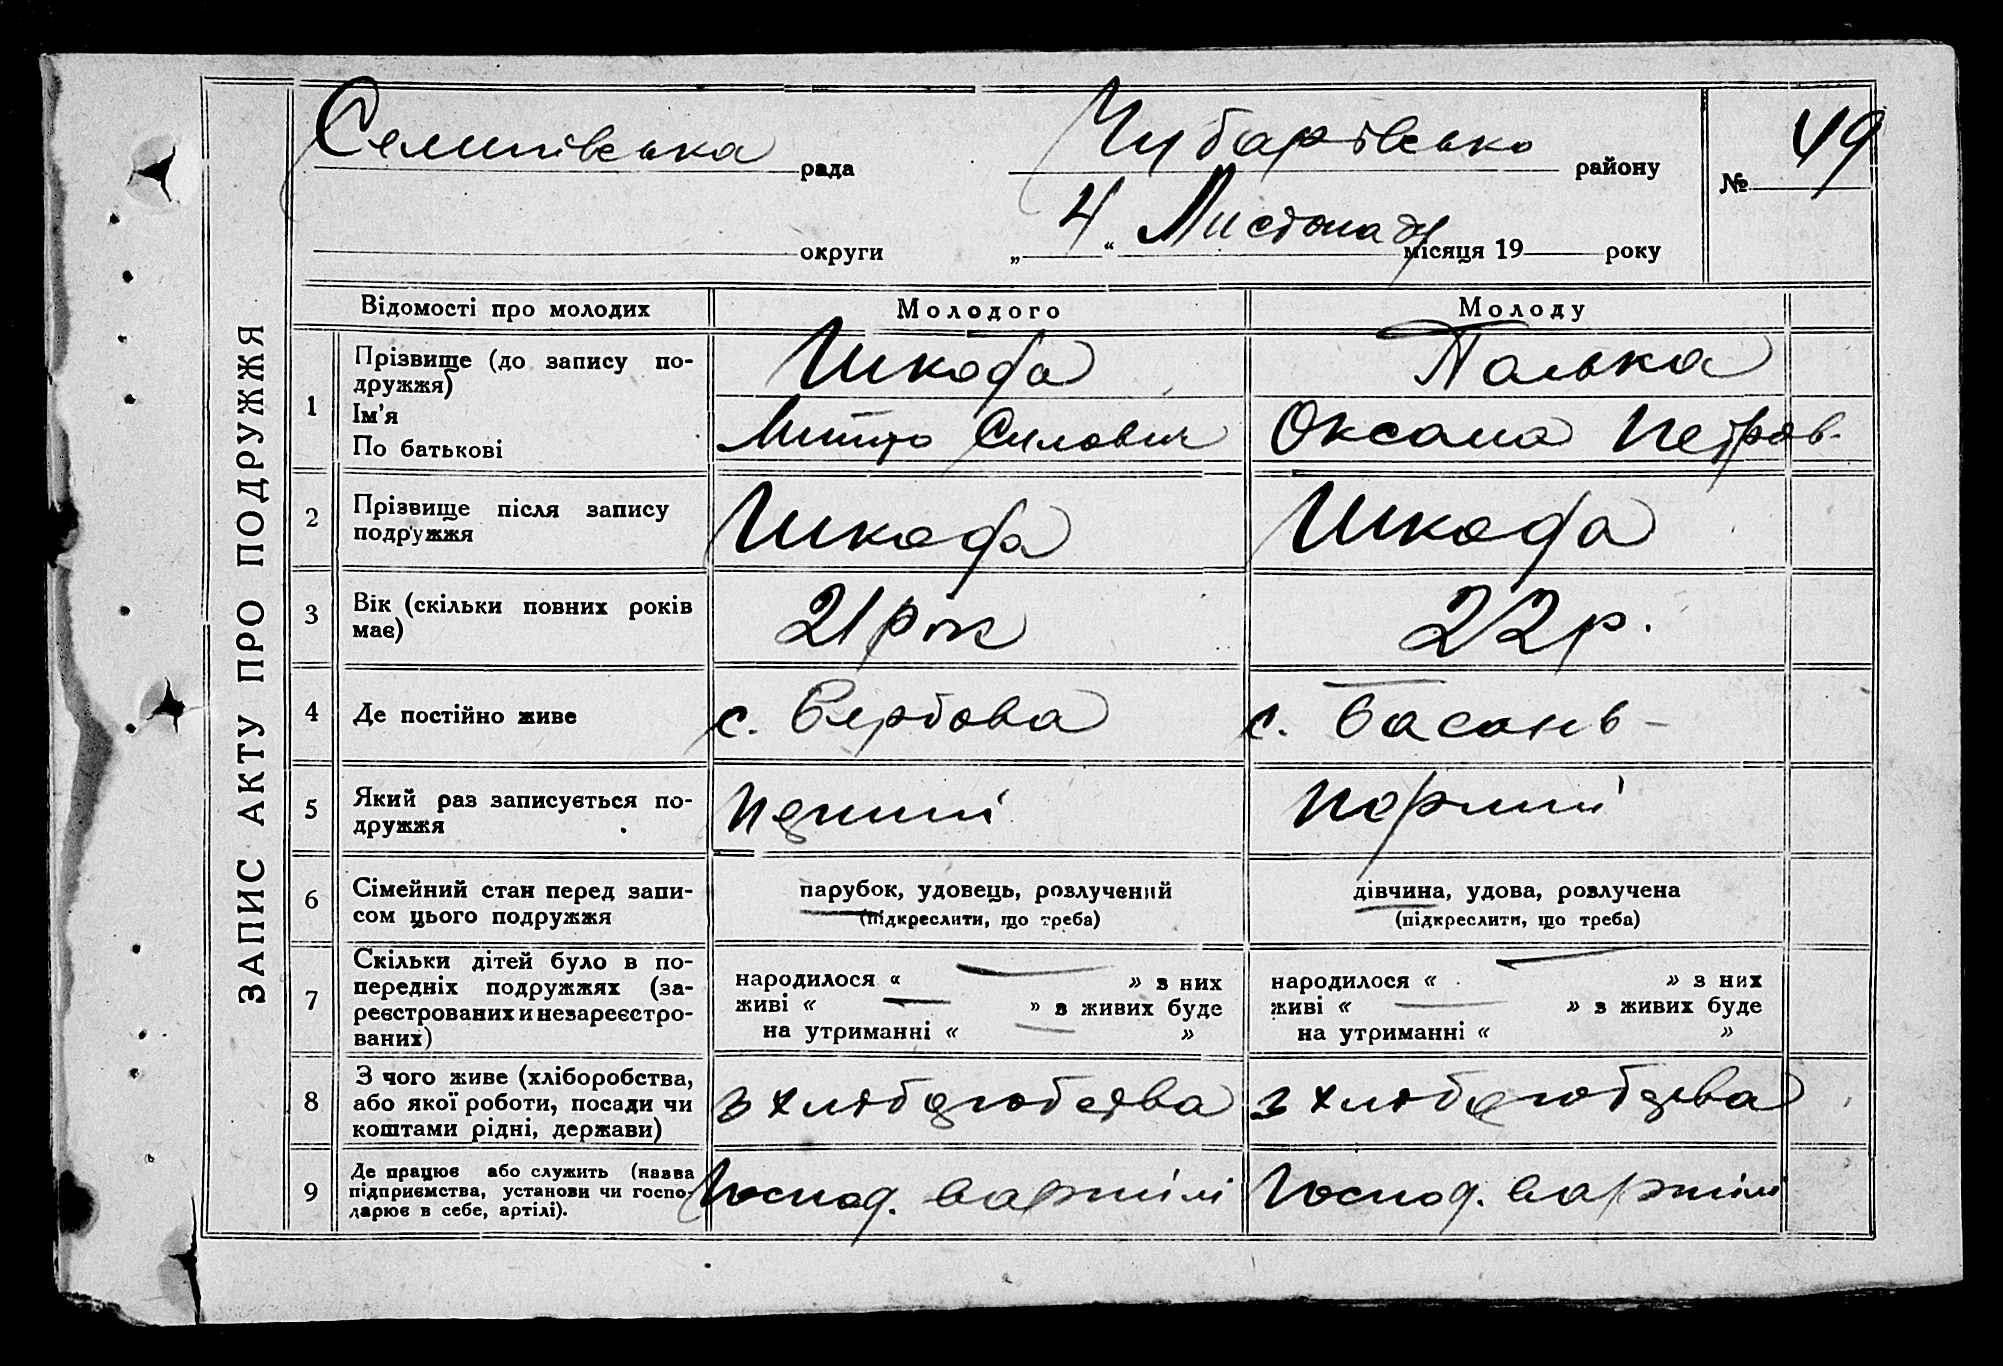 ЗАПИС АКТУ ПРО ПОДРУЖЖЯ
рада
Чубарівсько району
№ 49
округи
„ 4 “ Листопаду місяця 19 року
Відомості про молодих
Молодого
Молоду
1
Прізвище (до запису по-
дружжя)
Ім'я
По батькові
Шкода
Силович
Палька
Оксана Петров-
2
Прізвище після запису
подружжя
Шкода
Шкода
3
Вік (скільки повних років
має)
21 рік
22 р.
4
Де постійно живе
с. Вербова
с. Басань
5
Який раз записується по-
дружжя
перший
6
Сімейний стан перед запи-
сом цього подружжя
парубок, удовець, розлучений
(підкреслити, що треба)
дівчина, удова, розлучена
(підкреслити, що треба)
7
Скільки дітей було в по-
передніх подружжях (за-
реєстрованих и незареєстро-
ваних)
народилося « — » з них
живі « — » з живих буде
на утриманні « — »
народилося « — » з них
живі « — » з живих буде
на утриманні « »
8
З чого живе (хліборобства,
або якої роботи, посади чи
коштами рідні, держави)
з хліборобства
з хліборобства
9
Де працює або служить (назва
підприємства, установи чи госпо-
дарює в себе, артілі).
Господ. в артілі
Господ. в артілі